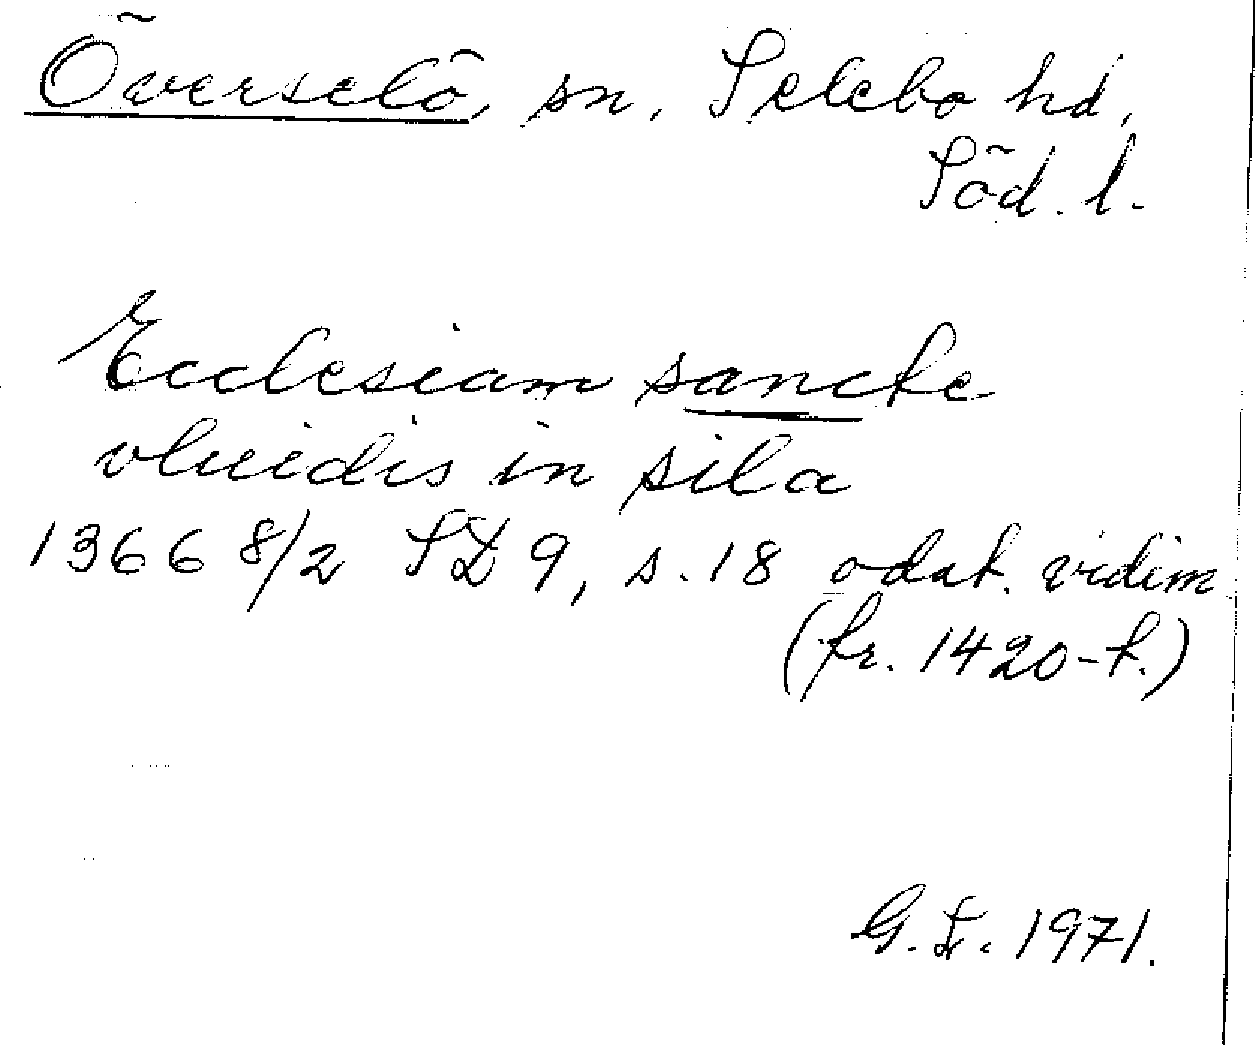 Överselö, sn, Selebo hd,
Söd. l.
Ecclesiam sancte
vluidis in sila
1366 8/2 SD 9, s. 18 odat. vidim
(fr. 1420-t.)
G. L. 1971.